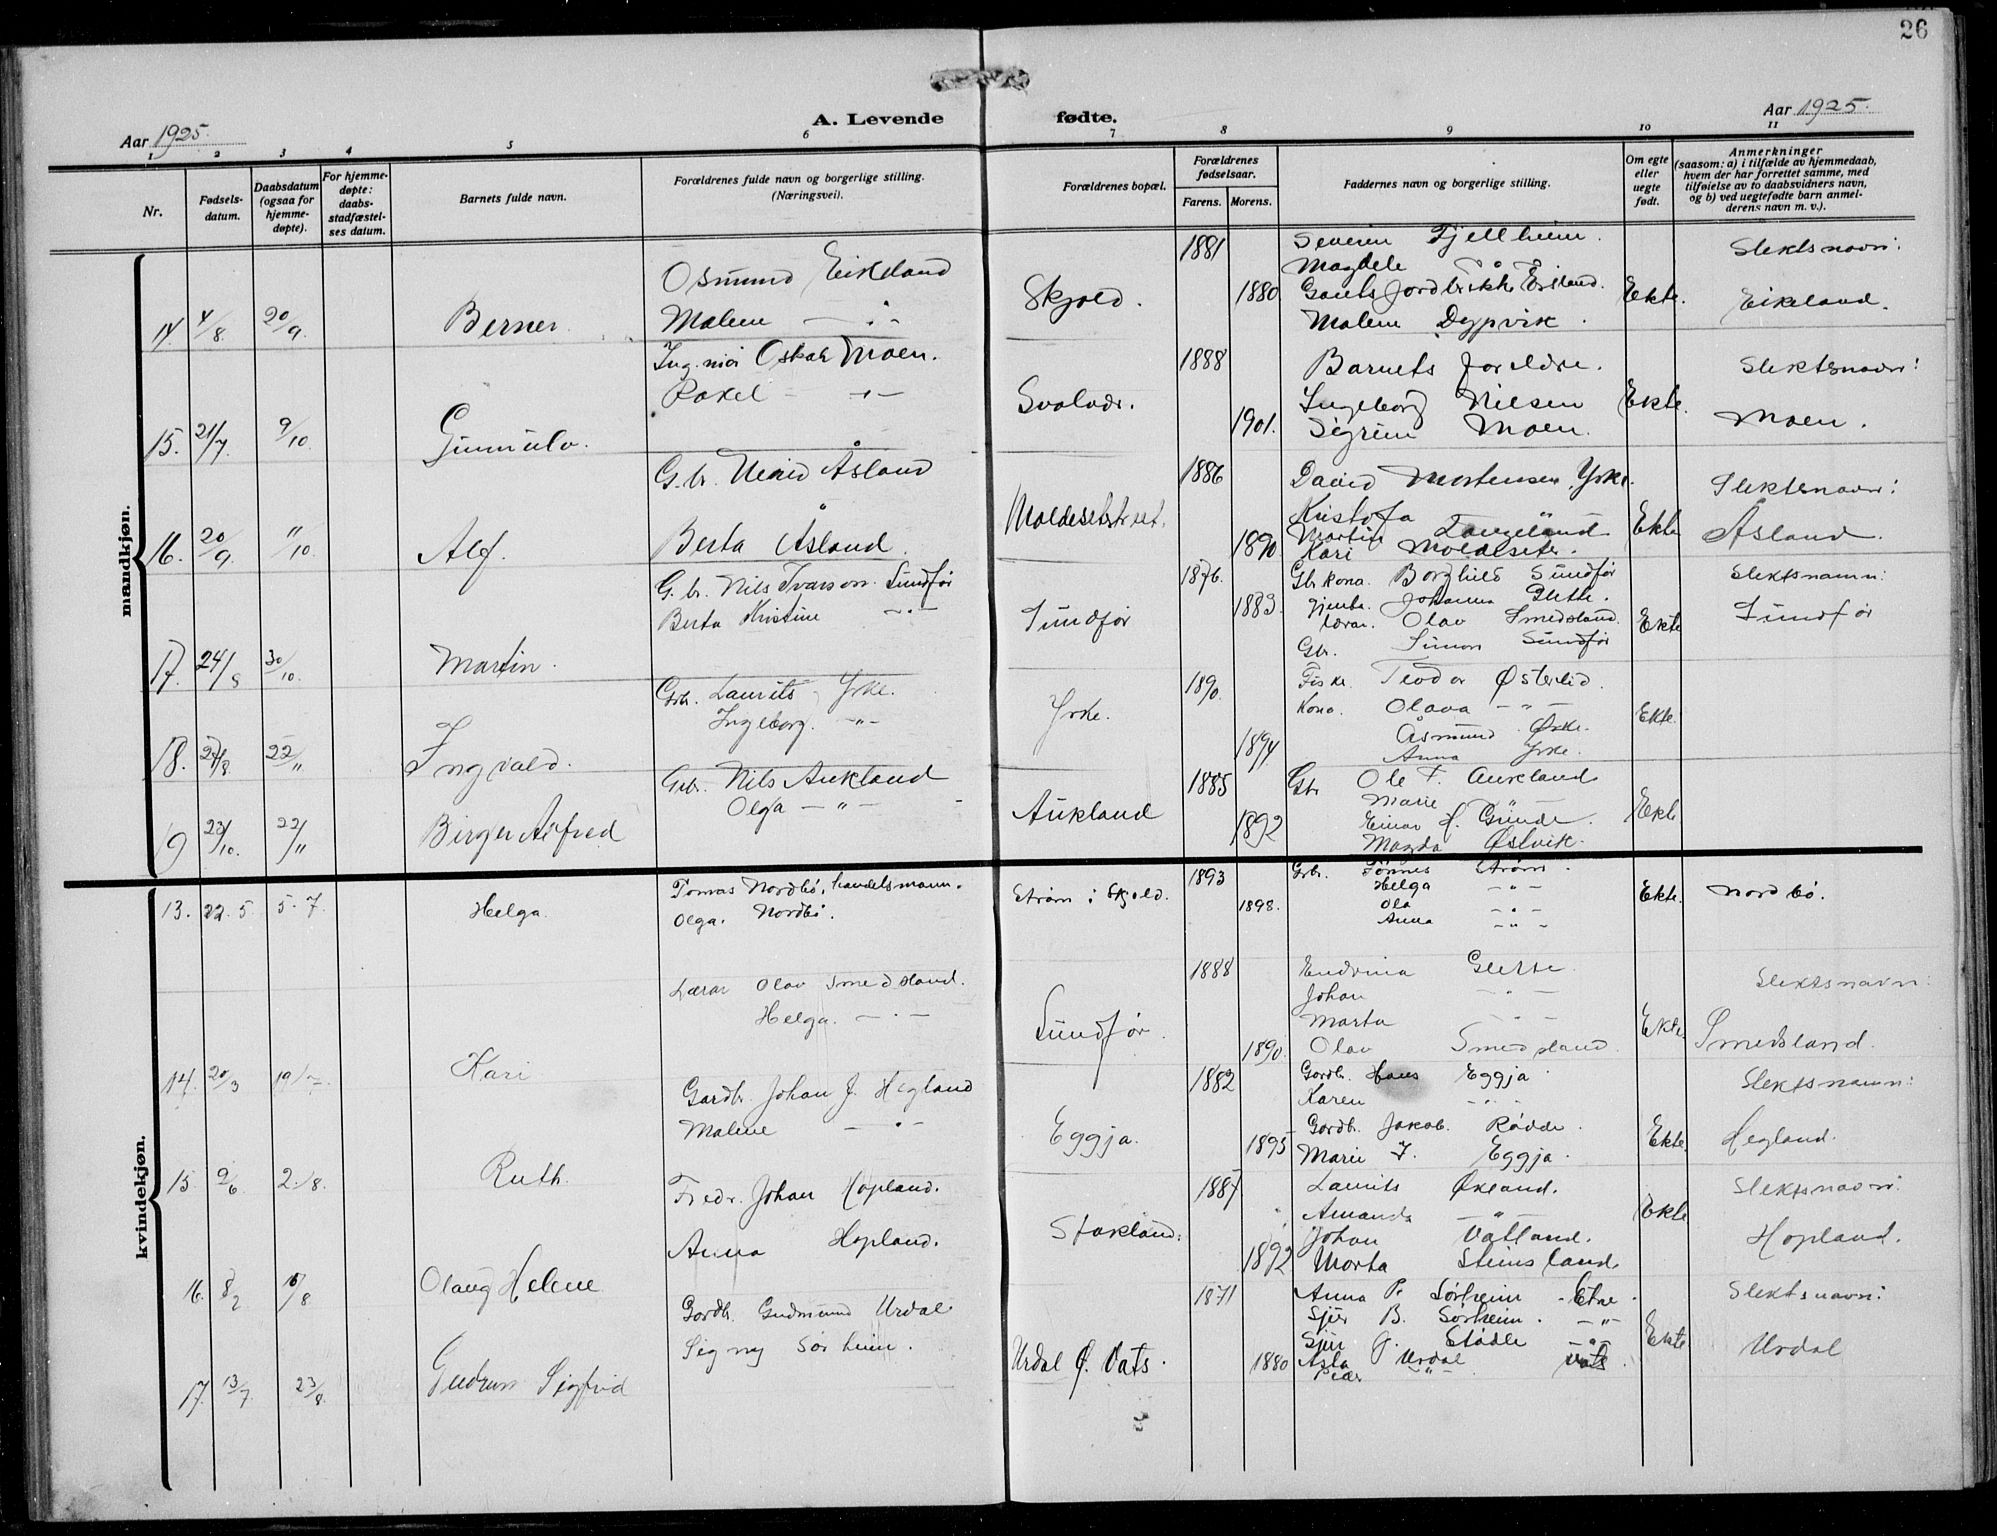 26
Aar 1925.
A. Levende
fødte.
Aar 1925.
1 2 3 4 5 6 7 8 9 10 11
Nr.
Fødsels-
datum.
Daabsdatum
(ogsaa for
hjemme-
døpte).
For hjemme-
døpte:
daabs-
stadfæstel-
ses datum.
Barnets fulde navn.
Forældrenes fulde navn og borgerlige stilling.
(Næringsvei).
Forældrenes bopæl.
Forældrenes
fødselsaar.
Farens. Morens.
Faddernes navn og borgerlige stilling.
Om egte
eller
uegte
født.
Anmerkninger
(saasom: a) i tilfælde av hjemmedaab,
hvem der har forrettet samme, med
tilføielse av to daabsvidners navn,
og b) ved uegtefødte barn anmel-
derens navn m. v.).
mandkjøn.
14. 4/8. 20/9. Berner.
Osmund Eikeland
Malene — " —
Skjold.
1881
1880
Severin Fjellheim.
Magdele
Malene Dypvik.
Ekte.
Slektsnavn:
Eikeland.
15. 21/7. 9/10. Gunnulv.
Oskar Moen.
Rakel — " —
Svolvær.
1888
1901.
Barnets foreldre.
Ingeborg Nilsen
Sigrun Moen.
Ekte.
Slektsnavn:
Moen.
16. 20/9. 11/10. Alf.
G.br. Åsland
Berta Åsland.
1886
1890
David Mortensen Yrke.
Kristofa "
Martin Langeland
Kari Moldeseter.
Ekte
Slektsnavn:
Åsland.
17. 24/8 30/10. Martin.
G.br. Nils Ivarson Sundfør
Berta Kristine — " —
Sundfør
1876.
1883.
Gbrkona. Borghild Sundfør
gjenta. Johanna Glette.
lærar. Olav Smedsland.
Gbr. Simon Sundfør
Ekte
Slektsnamn:
Sundfør
18. 22/11 Ingvald.
Gbr. Laurits Yrke.
Ingeborg. — " —
Yrke.
1890.
1894
Fisk. Teodor Østerlid.
Kona. Olava — " —
Åsmund Yrke.
Anna Yrke.
Ekte.
19 23/10. 22/11 Birger Alfred
Gbr. Nils Aukland
Olga — " —
Aukland
1885
1892
Gbr Ole T. Aukland
Marie "
Einar H. Grinde.
Magda Østvik.
Ekte
kvindekjøn.
13. 22. 5 5. 7. Helga.
Tomas Nordbø, handelsmann.
Olga. Nordbø.
Strøm i Skjold.
1893
1898.
Gbr. Tønnes Strøm.
Helga — " —
Ola — " —
Anna — " —
Ekte.
Nordbø.
14. 20/3 19/7 Kari
Lærar Olav Smedsland.
Helga. — " —
Sundfør.
1888
1890.
Endrina Glette.
Johan — " —
Marta — " —
Olav Smedsland
Ekte.
Slektsnavn:
Smedsland.
15. 9/6 2./8. Ruth.
Gardbr. Johan J. Hegland
Malene — " —
Eggja.
1882
1895
Gardbr. Hans Eggja.
Karen — " —
Gardbr. Jakob. Rødde.
Marie J. Eggja.
Ekte.
Slektsnamn:
Hegland.
16. 8/2 /8 Olaug Helene
Johan Hopland.
Anna Hopland.
Stakland.
1887
1892
Laurits Økland.
Amanda — " —
Johan Vatland.
Marta Steinsland.
Ekte
Slektsnavn:
Hopland.
17. 13/7 23/8. Gudrun Sigfrid
Gardbr. Gudmund Urdal
Signy Sørheim.
Urdal Ø. Vats.
1871
1880
Anna P. Sørheim - Etne.
Sjur B. Sørheim. — " —
Sjur G. Stødle — " —
Asla Urdal Vats.
Peder — " —
Ekte
Slektsnavn:
Urdal